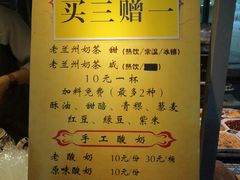 买三赠一
老兰州奶茶 甜(热饮/常温/冰镇)
老兰州奶茶 咸(热饮/
10元一杯
加料免费(最多2种)
酥油、甜醅、青稞、藜麦
红豆、绿豆、紫米
手工酸奶
老酸奶 10元/份 30元/桶
原味酸奶 10元/份